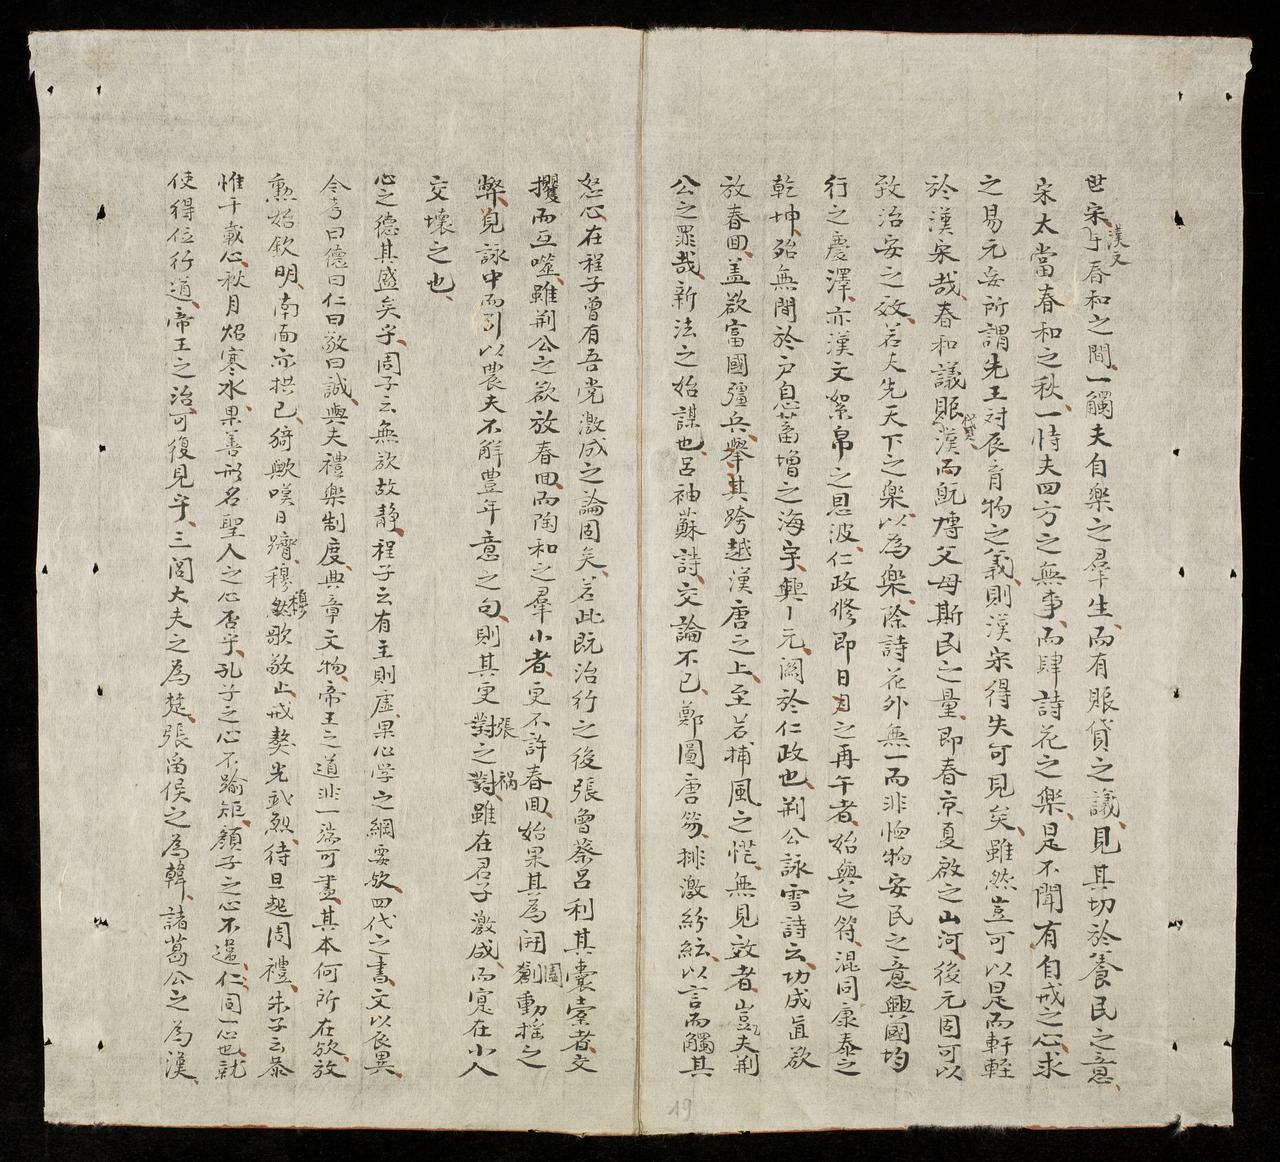 世宋漢文於春和之間一觸夫自樂之羣生而有賑貸之議見其切於養民之意
宋太當春和之秋一恃夫四方之無事而肆詩花之樂是不聞有自戒之心求
之易元妄所謂先王対辰育物之義則漢宋得失可見矣雖然豈可以是而軒輊
於漢宋哉春和議賑貸漢而旣愽父母斯民之量即春京夏啟之山河後元固可以
致治安之效若夫先天下之樂以為樂除詩花外無一而非恤物安民之意興國均
行之慶澤亦漢文絮帛之恩波仁政修即日月之再午者始與之符混同康泰之
乾坤殆無間於戸息蓄增之海宇興元闕於仁政也荆公詠雪詩云功成直欲
放春囬盖欲富國彊兵舉其跨越漢唐之上至若捕風之慌無見效者豈夫荆
公之罪哉新法之始謀也呂袖蘇詩交論不已鄭圖唐笏排激紛紜以言而觸其
怒心在程子曾有吾党激成之論固矣若此既治行之後張曾蔡呂利其囊橐者交
攫而互噬雖荆公之欲放春囬而陶和之羣小者更不許春囬始果其為開創圖動搖之
弊見詠中而引以農夫不解豊年意之句則其更張對之對禍雖在君子激成而寔在小人
交壞之也
心之德其盛矣乎周子云無欲故静程子云有主則虛果心学之綱要欤四代之書文以辰異
今考曰德曰仁曰敬曰誠與夫禮樂制度典章文物帝王之道非一端可盡其本何所在欤放
勲始欽明南面亦拱已猗歟嘆日躋穆穆然歌敬止戒獒光武烈待旦起周禮朱子云恭
惟千載心秋月炤寒水果善形名聖人之心否乎孔子之心不踰矩顔子之心不違仁同一心也就
使得位行道帝王之治可復見乎三閭大夫之為楚張留侯之為韓諸葛公之為漢